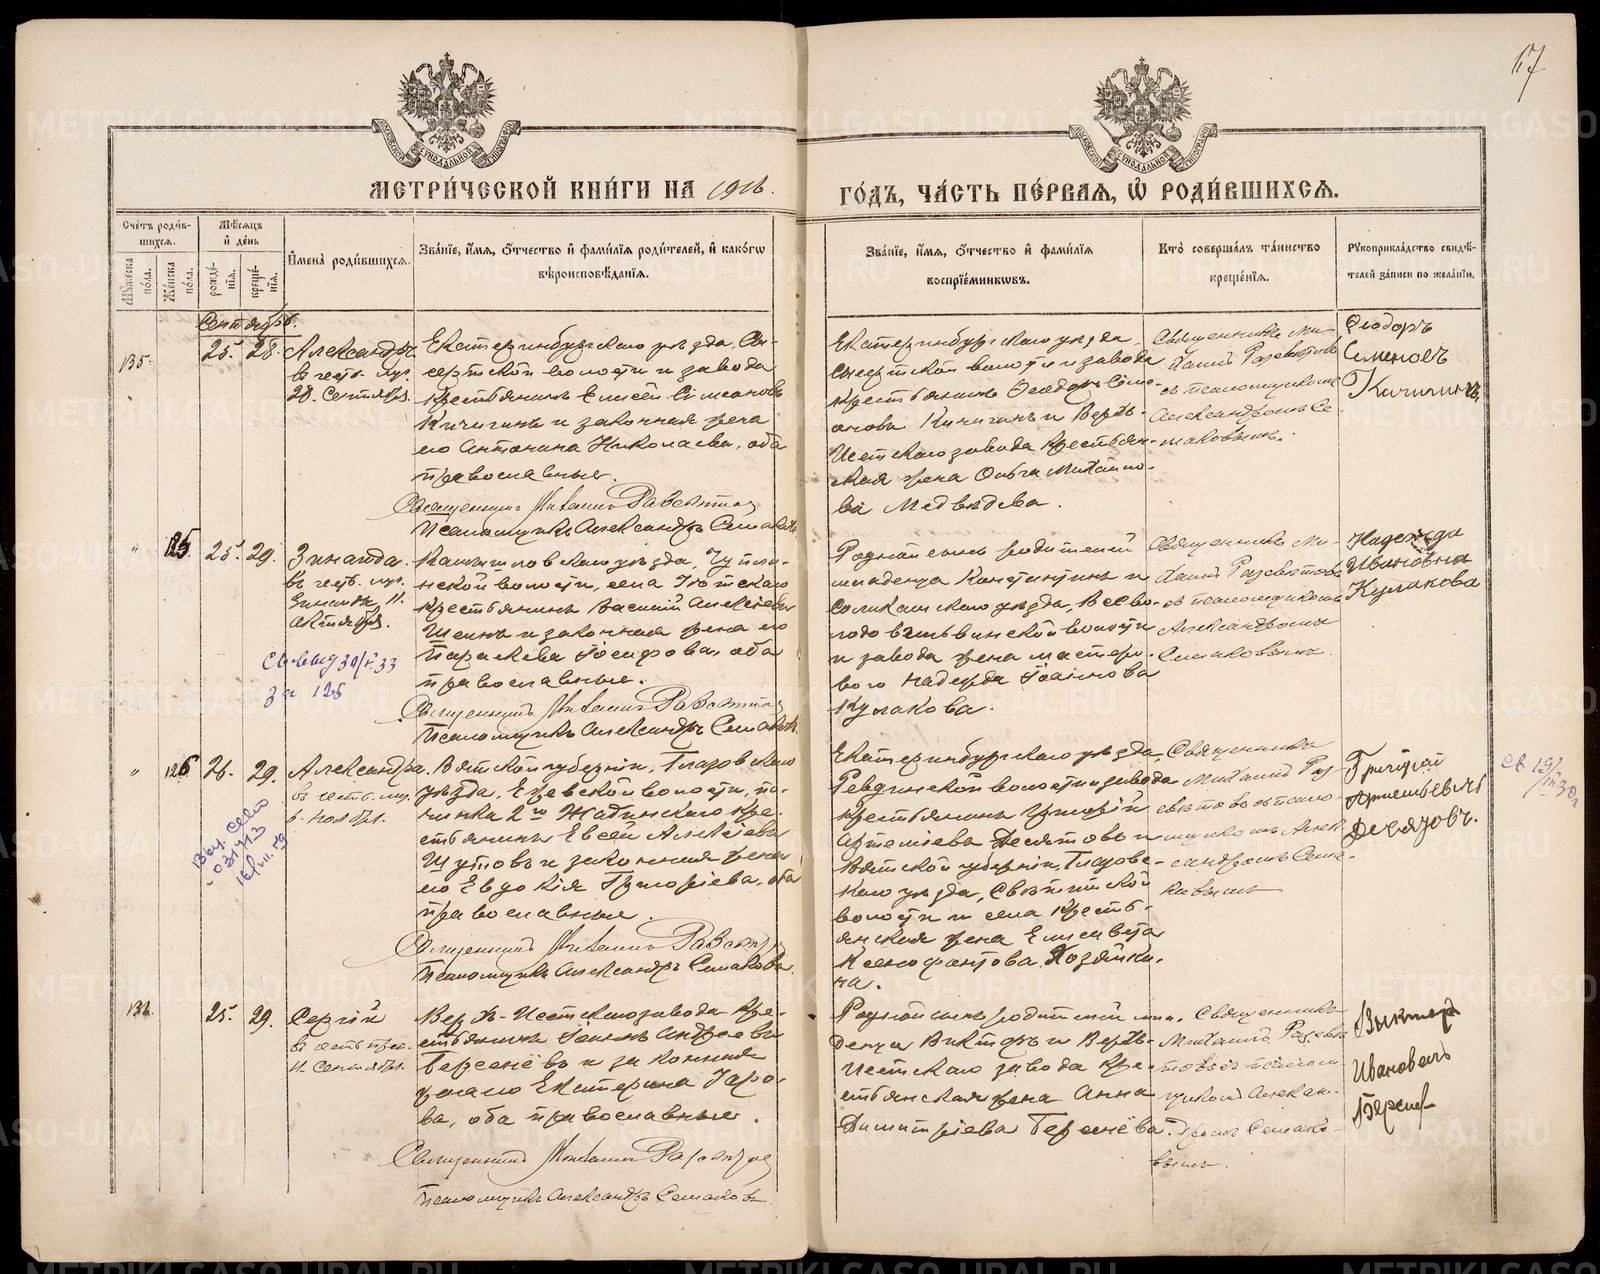 17
МЕТРИ́ЧЕСКОЙ КНИ́ГИ НА 1916.
ГО́ДЪ, ЧА́СТЬ ПЕ́РВАЯ, Ѡ҆ РОДИ́ВШИХСЯ.
Сче́тъ роди́в-
шихся.
Мѣ́сяцъ
и҆ де́нь
Мꙋ́жеска
по́ла.
Же́нска
по́ла.
рожде́-
нїя.
креще́-
нїя.
И҆мена̀ роди́вшихся.
Зва́нїе, и҆́мя, ѻ҆́тчество и҆ фами́лїя роди́телей, и҆ како́гѡ
вѣроисповѣ́данїя.
Зва́нїе, и҆́мя, ѻ҆́тчество и҆ фами́лїя
воспрїе́мникѡвъ.
Кто̀ соверша́лъ та́инство
креще́нїя.
Рꙋкоприкла́дство свидѣ́-
телей за́писи по жела́нїю.
Сентябрь.
135. 25. 28. Александръ
въ честь муч.
28. Сентября.
Екатеринбургскаго уѣзда, Сы-
сертской волости и завода
крестьянинъ Елисей Симеоновъ
Кичигинъ и законная жена
его Антонина Николаева, оба
православные.
Священникъ Михаилъ
Псаломщикъ Александръ Семаковъ
Екатеринбургскаго уѣзда
Сысертской волости и завода
крестьянинъ Ѳеодоръ Симе-
оновъ Кичигинъ и Верхъ-
Исетскаго завода крестьян-
ская жена Ольга Михайло-
ва Медвѣдева.
Священникъ Ми-
хаилъ
съ псаломщикомъ
Александромъ Се-
маковымъ.
Ѳеодоръ
Семеновъ
Кичигинъ
" 125 25. 29. Зинаида
въ честь муч.
Зинаиды 11.
октября.
Св-выд 30/V 33
за 125
Камышловскаго уѣзда,
волости, села
крестьянинъ Василій Алексѣевъ
Шеинъ и законная жена его
Параскева Іосифова, оба
православные.
Священникъ Михаилъ
Псаломщикъ Александръ Семаковъ.
Родной сынъ родителей
младенца Константинъ и
Соликамскаго уѣзда, Всево-
лодовильвинской волости
и завода жена мастеро-
вого Надежда Іоаннова
Кулакова.
Священникъ Ми-
хаилъ
съ псаломщикомъ
Александромъ
Семаковымъ.
Надежда
Ивановна
Кулакова
" 126 26. 29. Александра.
въ честь муч.
6. ноября.
Вятской губерніи, Глазовскаго
уѣзда, Ежевской волости, по-
чинка 2го Жабинскаго кре-
стьянинъ Евсей Алексѣевъ
Шутовъ и законная жена
его Евдокія Григоріева, оба
православные.
Священникъ Михаилъ
Псаломщикъ Александръ Семаковъ.
Екатеринбургскаго уѣзда,
Ревдинской волости и завода
крестьянинъ Григорій
Артемьевъ Десятовъ и
Вятской губерніи, Глазовс-
каго уѣзда,
волости и села крестья-
янская жена Елисавета
Ксенофонтова Хозяйки-
на.
Священникъ
Михаилъ Раз-
съ псало-
мщикомъ Алек-
сандромъ Сема-
ковымъ
Григорій
Артемьевичъ
Десятовъ.
136. 25. 29. Сергій
въ честь преп.
Верхъ-Исетскаго завода кре-
стьянинъ Іоаннъ Андреевъ
Берсенёвъ и законная
жена его Екатерина
оба православные.
Священникъ Михаилъ
Псаломщикъ Александръ Семаковъ
Родной сынъ родителей мла-
денца Викторъ и Верхъ-
Исетскаго завода кре-
стьянская жена Анна
Димитріева Берсенёва.
Священникъ
Михаилъ
Алексан-
дромъ Семако-
вымъ.
Викторъ
Ивановичъ